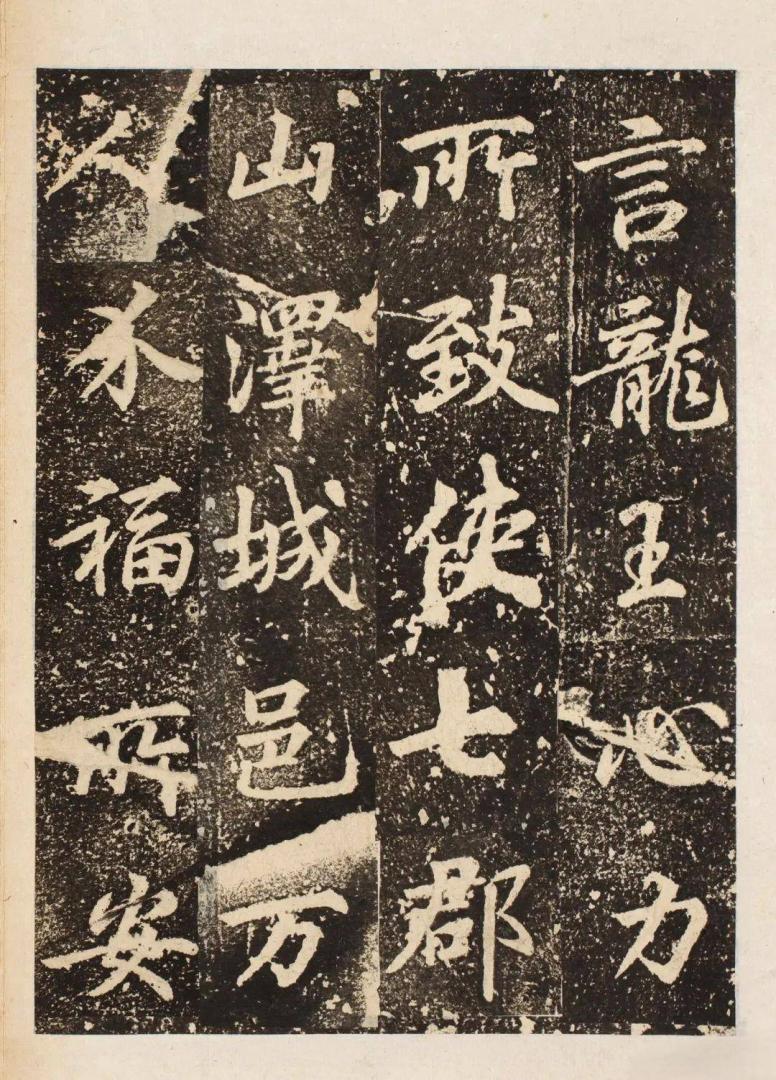 言龍王心力
所致使七郡
山澤城邑万
人福所安